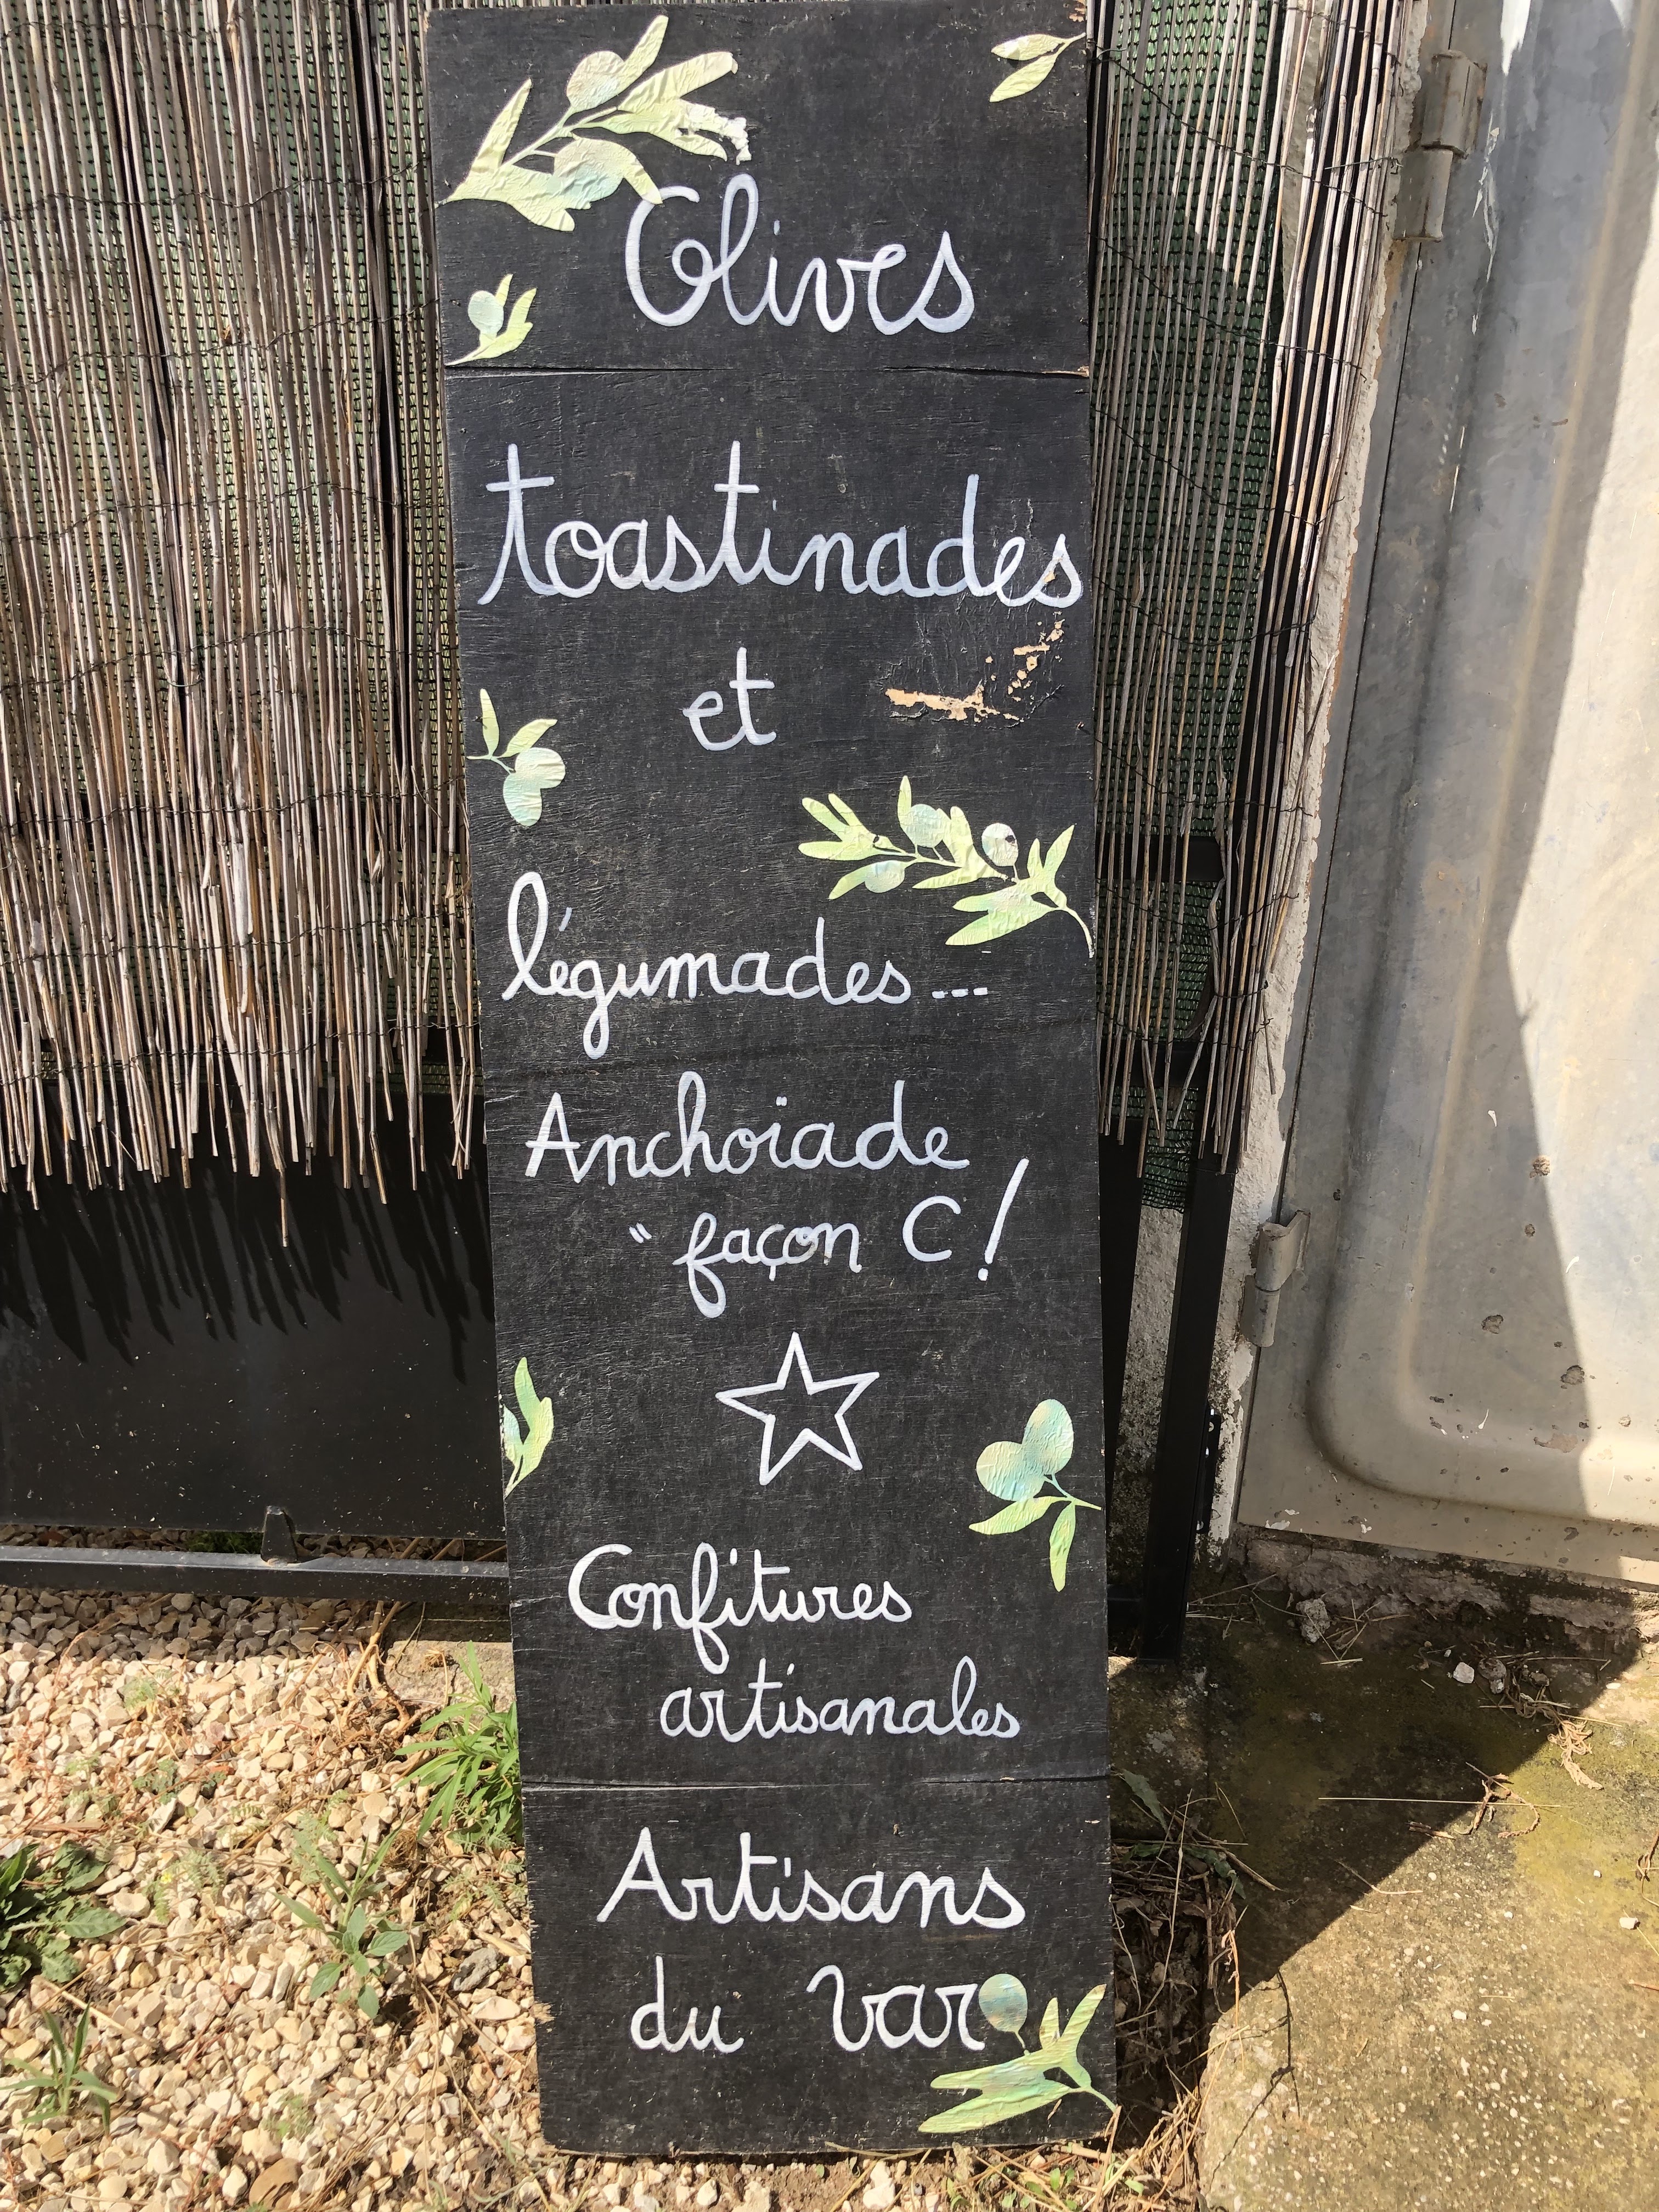 Olives
toastinades
et
légumades ...
Anchoïade
" façon C !
Confitures
artisanales
Artisans
du Var